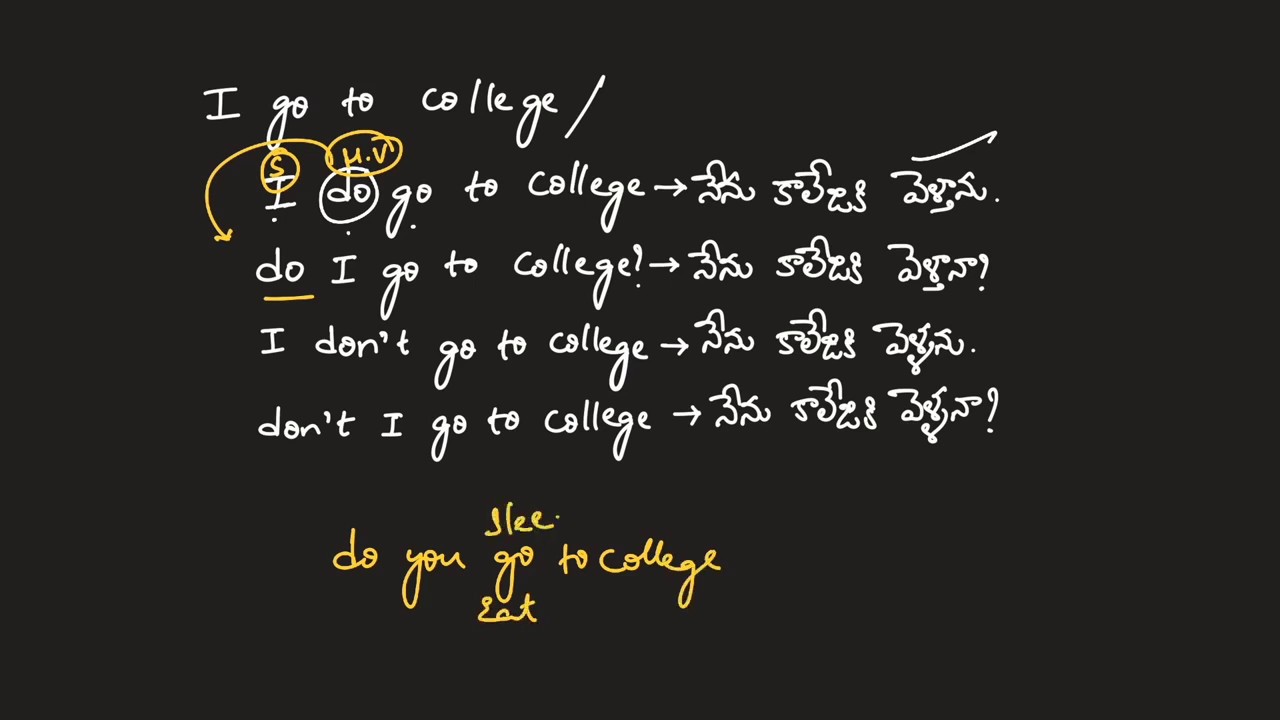 I go to college /
S H.V
I do go to college → నేను కాలేజికి వెళ్తాను.
do I go to college? → నేను కాలేజికి వెళ్తానా?
I don't go to college → నేను కాలేజికి వెళ్ళను.
don't I go to college → నేను కాలేజికి వెళ్ళనా?
slee
do you go to college
Eat